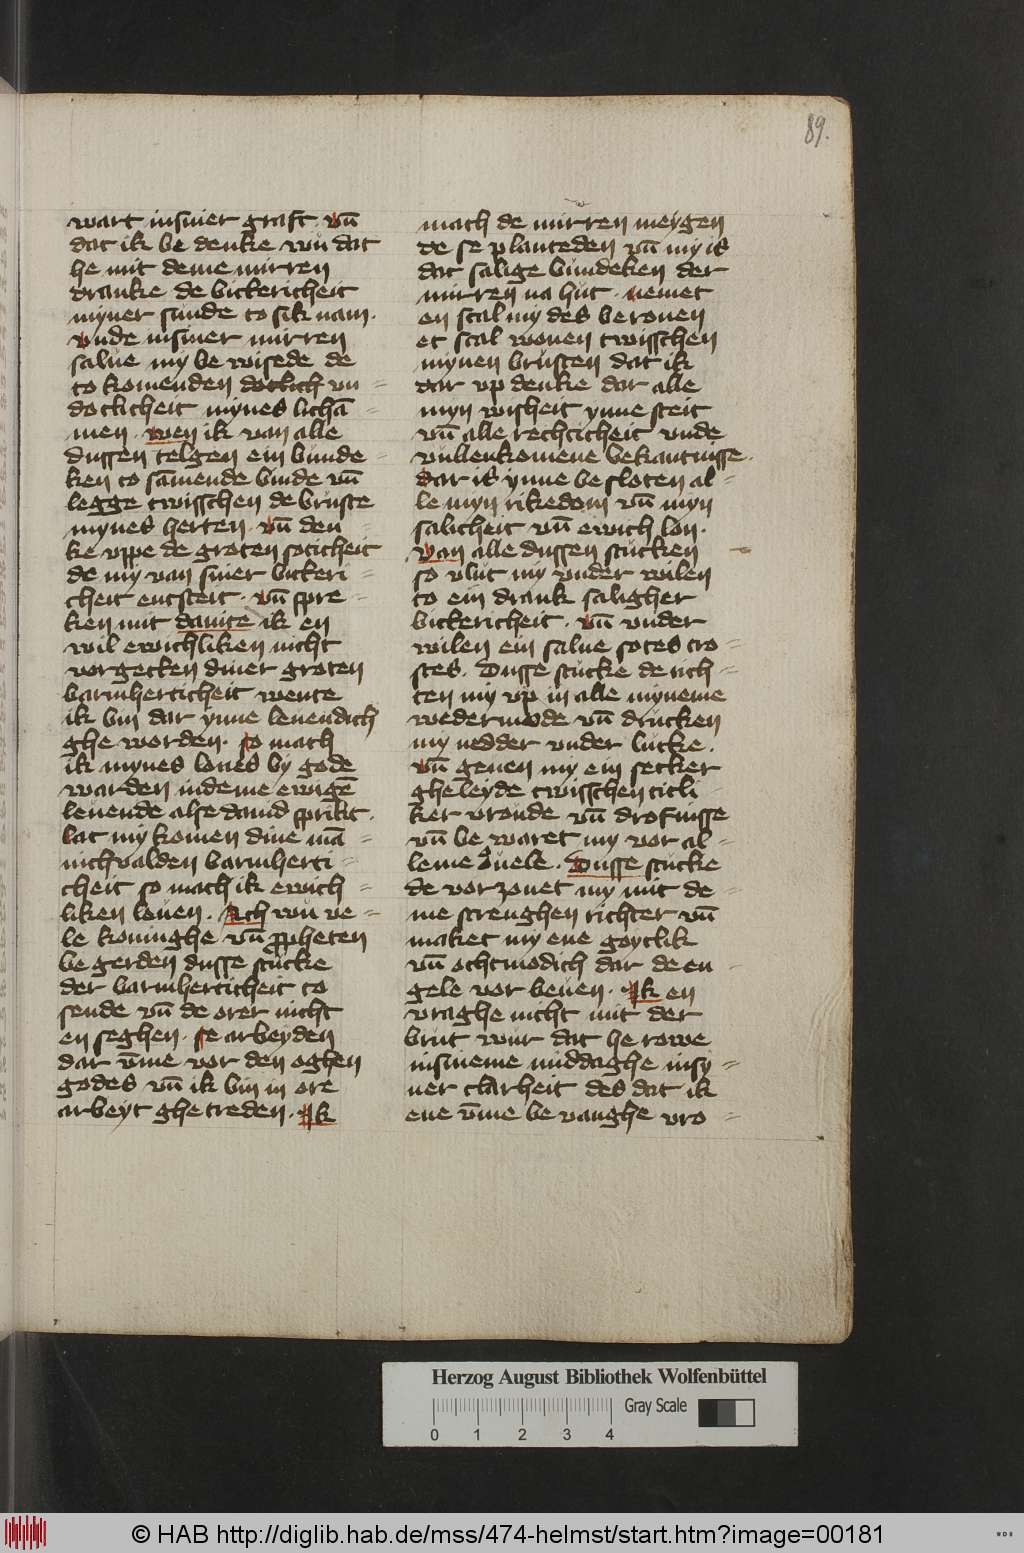 89.
wart insiner graft · vn̄
dat ik be denke wů dat
he mit deme mirren
dranke de bickericheit
myner sunde to sik nam ·
vnde insiner mirren
salue my be wisede de
to komenden dotlich vn
dotlicheit mynes lichā
men · wen ik van alle
dussen telgen ein bunde
ken to sāmende binde vn̄
legge twisschen de bruste
mynes herten · vn̄ den
ke vppe de groten soticheit
de my van siner bickeri
cheit entsteit · vn̄ spre
ken mit dauite ik en
wil ewichliken nicht
vorgetten diner groten
barmherticheit wente
ik bin dar ynne leuendich
ghe worden · so mach
ik mynes loues by gode
warden indeme ewigē
leuende alse dauid sprikt ·
lat my komen dine mā
nichualden barmherti
cheit so mach ik ewich
liken louen · Ach wu ve
le koninghe vn̄ ꝓpheten
be gerden dusse stucke
der barmherticheit to
sende vn̄ de orer nicht
en seghen · se arbeyden
dar v̄me vor den oghen
godes vn̄ ik bin in ore
arbeyt ghe treden · Ik
mach de mirren mergen
de se planteden vn̄ my is
dat salige bundeken der
mirren na hut · nemet
en scal my des berouen
et scal wonen twisschen
mynen brusten dat ik
dar vp denke dar alle
myn wisheit ynne steit
vn̄ alle rechticheit vnde
vullenkomene bekantnisse ·
dar is ynne be sloten al
le myn rikedom vn̄ myn
salicheit vn̄ ewich lon ·
van alle dussen stucken
so vlut my vnder wilen
to ein drank saligher
bickericheit · vn̄ vnder
wilen ein salue sotes tro
stes · Dusse stucke de rich
ten my vp in alle myneme
wedermode vn̄ drucken
my nedder vnder lucke ·
vn̄ geuen my ein secker
gheleyde twisschen titli
ker vroude vn̄ drofnisse
vn̄ be waret my vor al
leme ǒuele · Dusse stucke
de vorzonet my mit de
me strenghen richter vn̄
maket my ene goytlik
vn̄ othmodich dar de en
gele vor beuen · Ik en
vraghe nicht mit der
brut wur dat he rowe
insineme middaghe insy
ner clarheit des dat ik
ene v̄me be vanghe vro
Herzog August Bibliothek Wolfenbüttel
Gray Scale
0 1 2 3 4
© HAB http://diglib.hab.de/mss/474-helmst/start.htm?image=00181